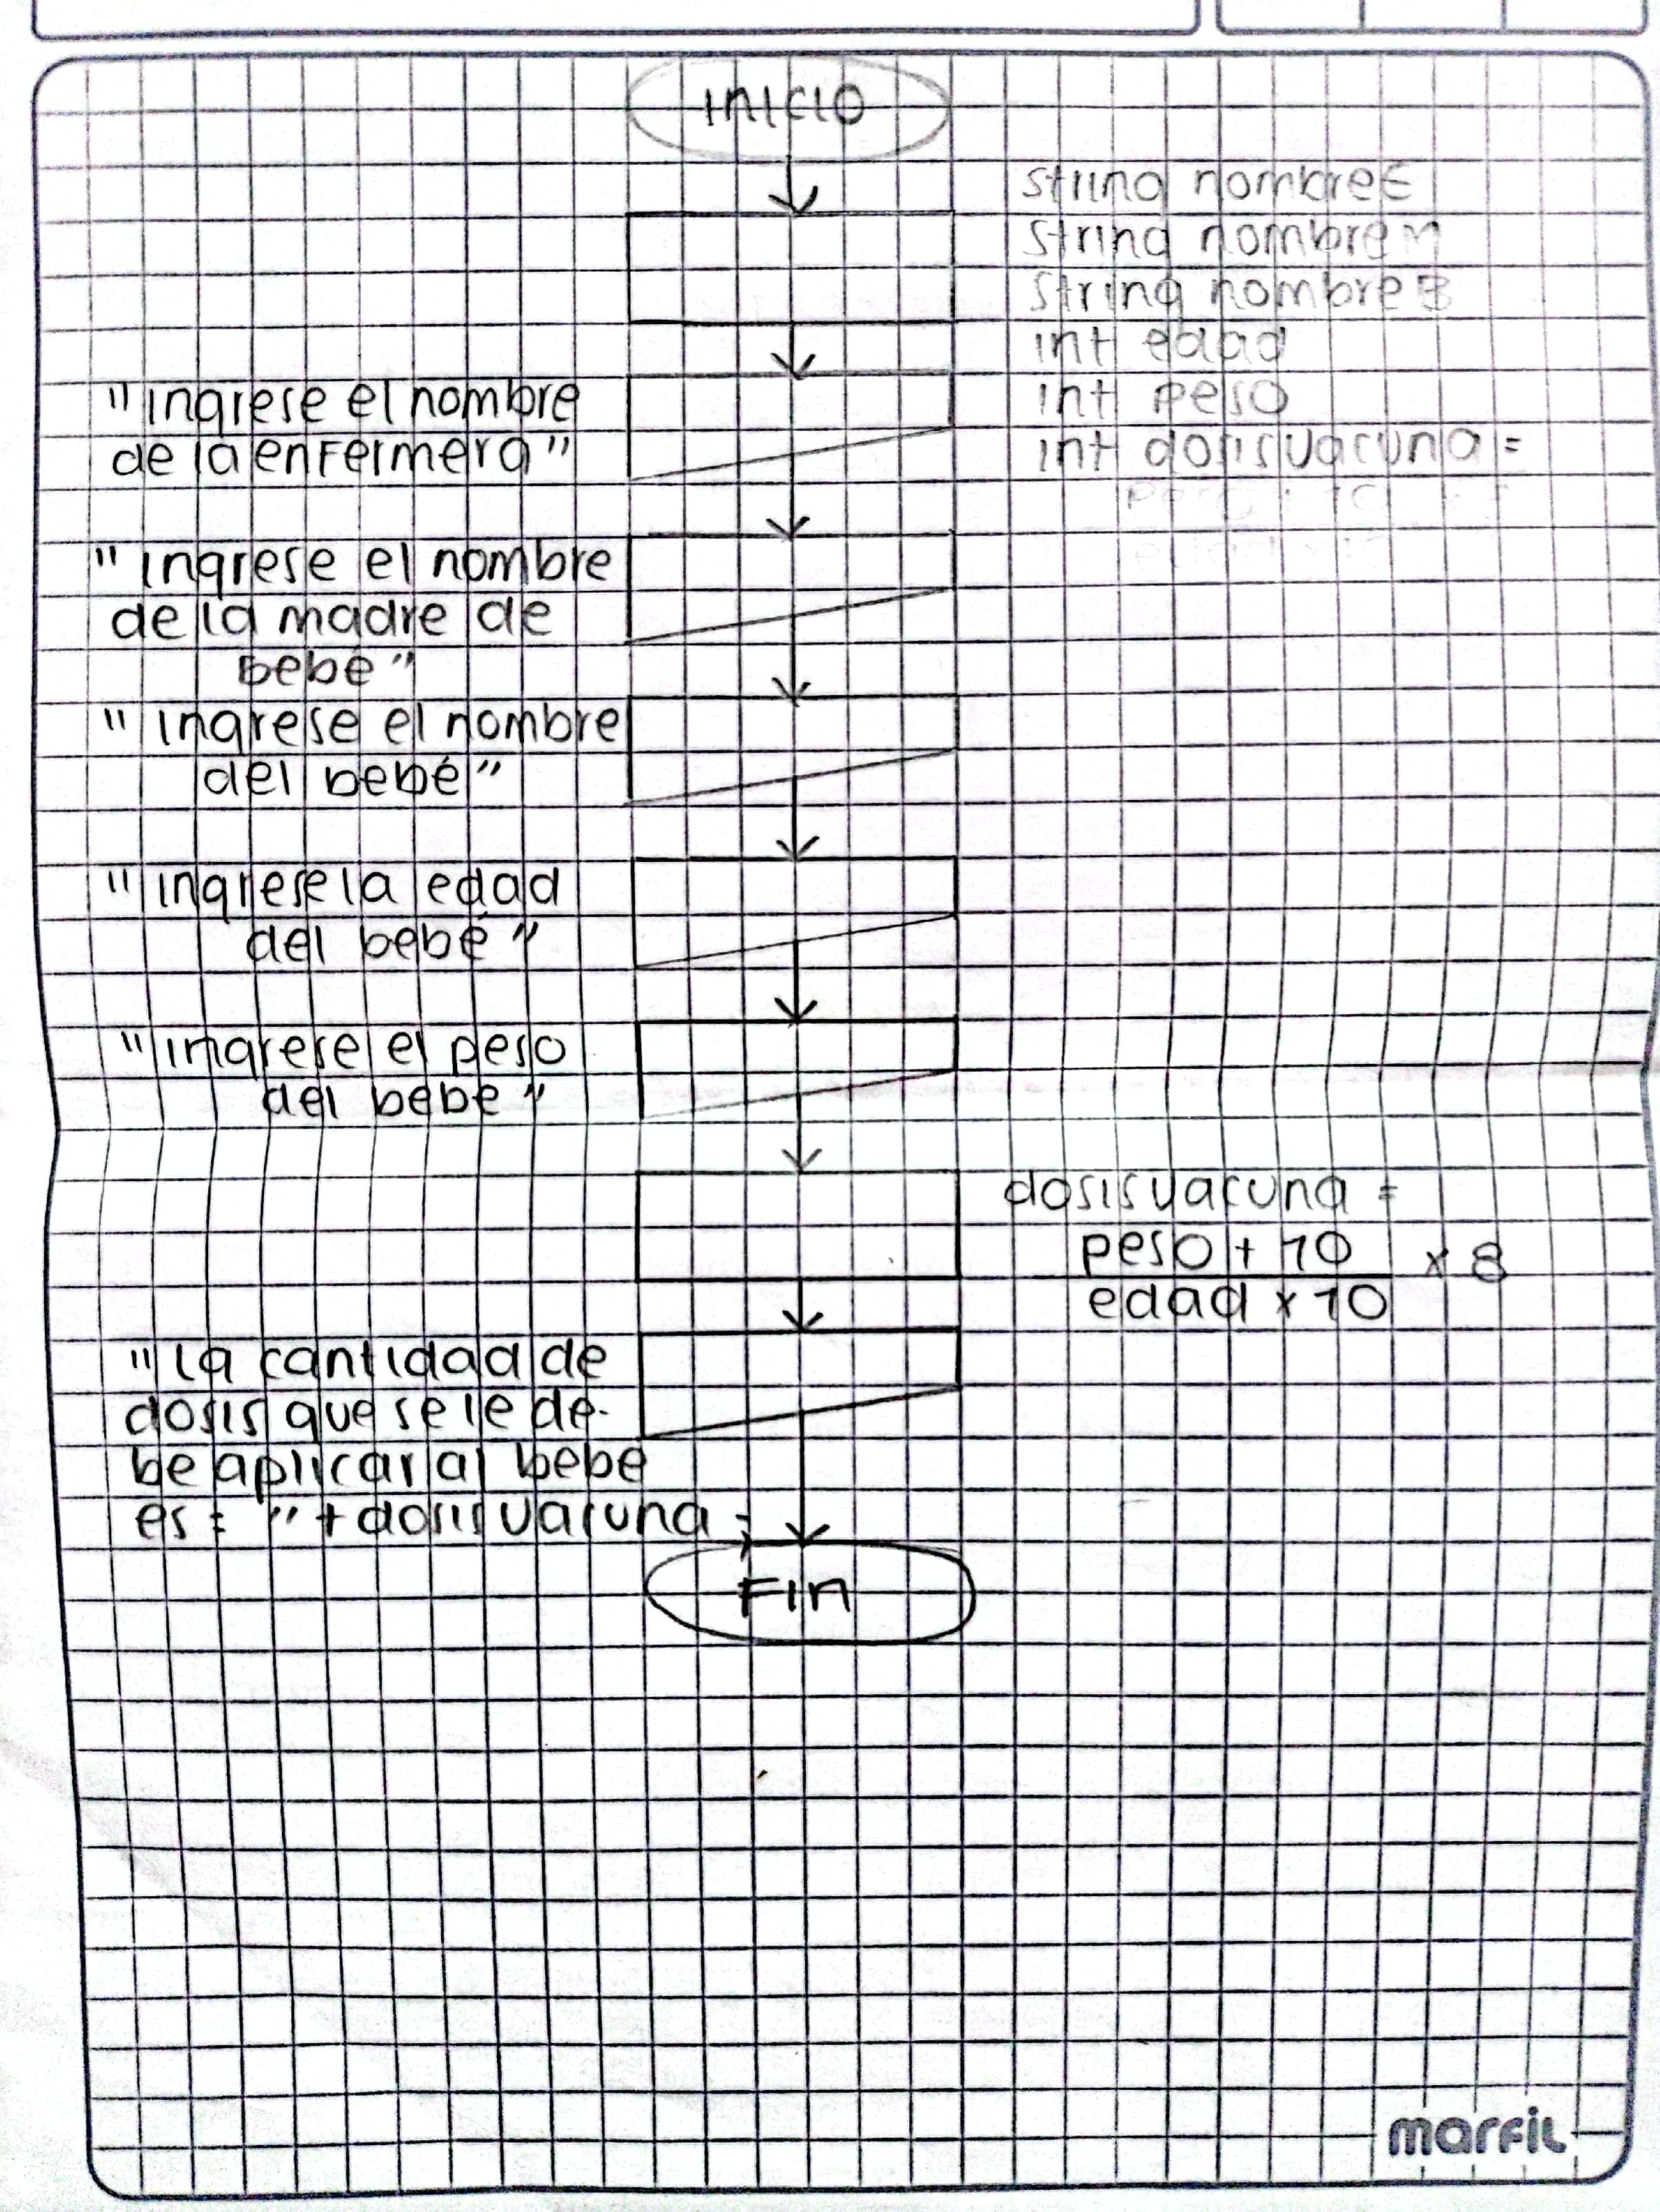 INICIO
string nombreE
string nombreM
string nombreB
int edad
int peso
int dosisvacuna =
"Ingrese el nombre
de la enfermera"
"Ingrese el nombre
de la madre de
bebé"
"Ingrese el nombre
del bebé"
"Ingrese la edad
del bebé"
"Ingrese el peso
del bebe"
dosisvacuna =
peso + 10
x 8
edad x 10
"La cantidad de
dosis que se le de-
be aplicar al bebe
es = " + dosisvacuna ;
FIN
marfil